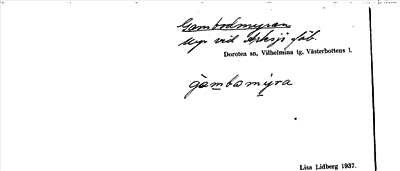 Gambodmyran
Myr vid Arksjö fäb.
Dorotea sn, Vilhelmina tg, Västerbottens l.
gàmbomýra
Lisa Lidberg 1937.